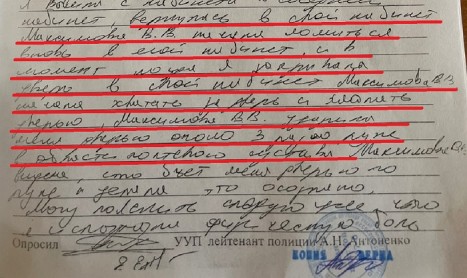 я вышла с кабинета в
кабинет, вернулась в свой кабинет
Максимова В.В. начала ломиться
вновь в мой кабинет, и в
момент когда я закрывала
дверь в свой кабинет Максимова В.В.
начала хватать за дверь и хлопать
дверью, Максимова В.В. ударила
меня дверью около 3 раз по руке
в области локтевого сустава Максимова В.В.
видела, что бьет меня дверью по
руке и делала это осознано,
Могу пояснить следующее, что
я испытала физическую боль
Опросил УУП лейтенант полиции А.Н. Антоненко
КОПИЯ ВЕРНА